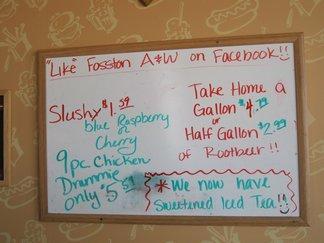 "Like" Fosston A&W on Facebook!!
Slushy $1.59
blue Raspberry
or
Cherry
9pc. Chicken
Drummie
only $5.59
Take Home a
Gallon $4.79
or
Half Gallon $2.99
of Rootbeer!!
*We now have
Sweetened Iced Tea!!